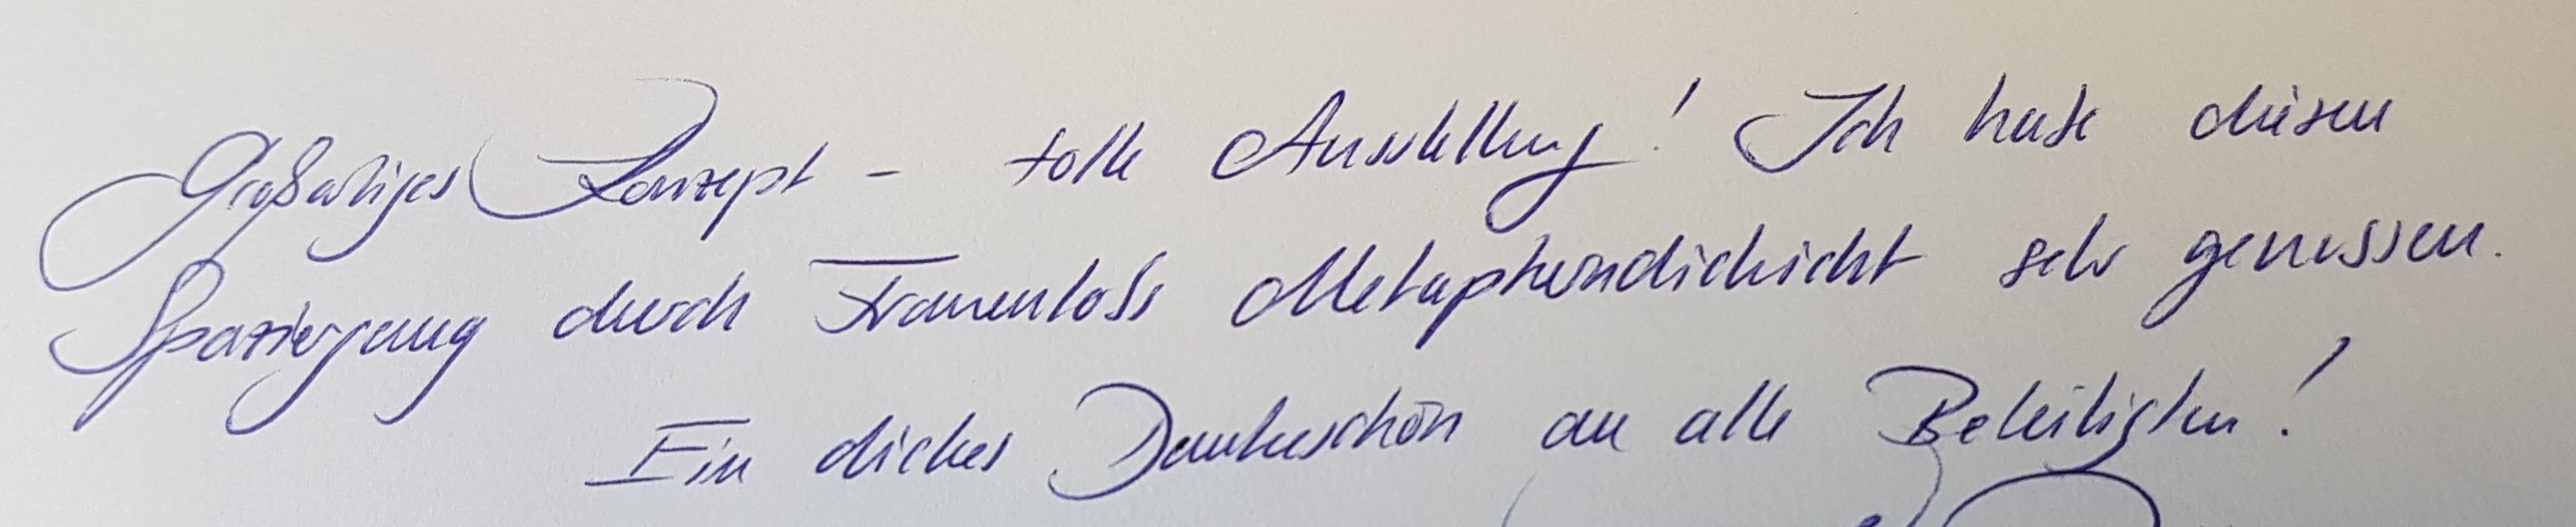 Großartiges Konzept - tolle Ausstellung! Ich habe diesen
Spaziergang durch Frauenlobs Metapherndickicht sehr genossen.
Ein dickes Dankeschön an alle Beteiligten!